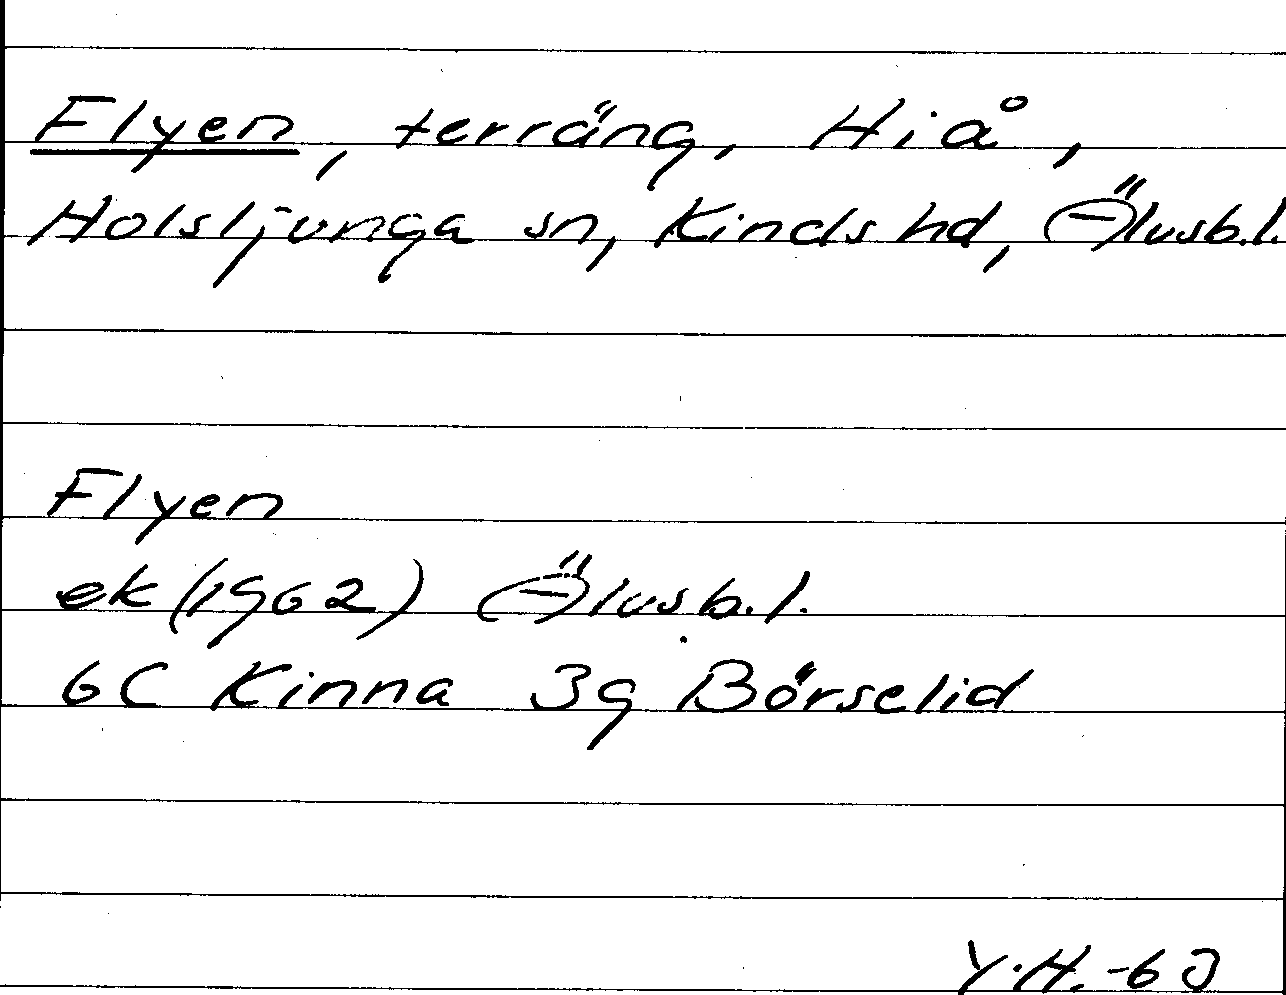 Flyen, terräng, Hiå,
Holsljunga sn, Kinds hd, Älvsb.l.
Flyen
ek (1962) Älvsb.l.
6C Kinna 3g Börselid
Y.H.-63